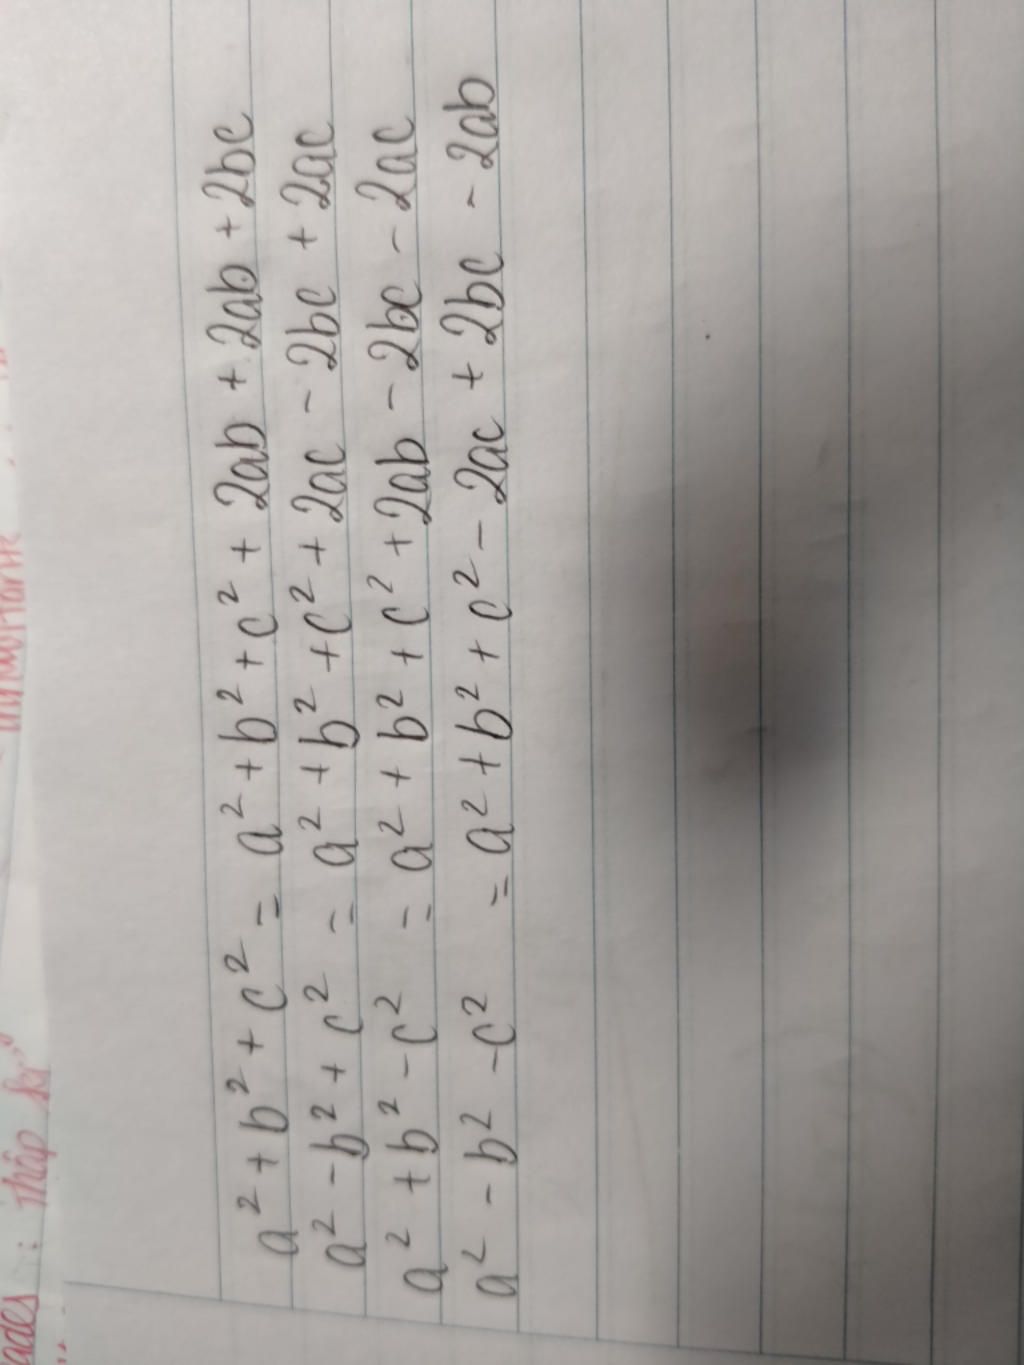 a² + b² + c² = a² + b² + c² + 2ab + 2ab + 2bc
a² - b² + c² = a² + b² + c² + 2ac - 2bc + 2ac
a² + b² - c² = a² + b² + c² + 2ab - 2bc - 2ac
a² - b² - c² = a² + b² + c² - 2ac + 2bc - 2ab
ades
: thập